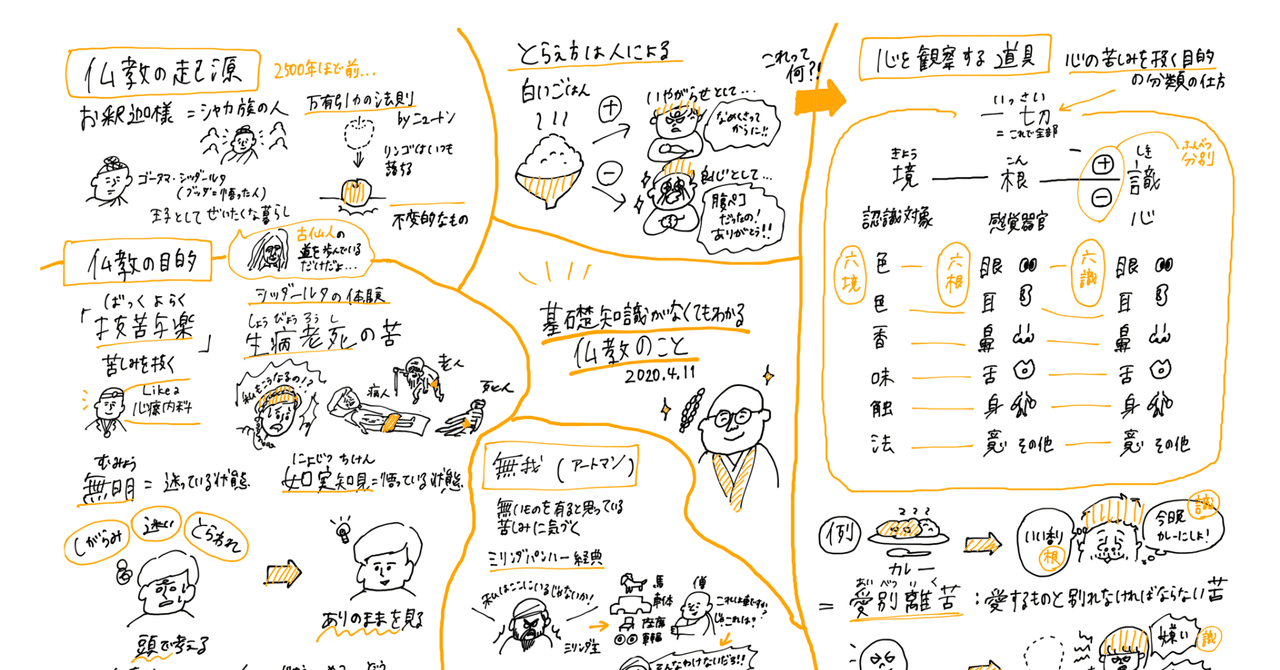 仏教の起源
2500年ほど前…
お釈迦様 = シャカ族の人
ゴータマ・シッダールタ
(ブッダ=悟った人)
王子としてぜいたくな暮らし
万有引力の法則
by ニュートン
リンゴはいつも
落ちる
不変的なもの
古仏人の
道を歩んでいる
だけだよ…
仏教の目的
ばっく よらく
「抜苦与楽」
苦しみを抜く
Like a
心療内科
シッダールタの体験
しょう びょう ろう し
生病老死の苦
私もこうなるの!?
病人
老人
死人
むみょう
無明 = 迷っている状態
にょじつ ちけん
如実知見 = 悟っている状態
しがらみ
迷い
とらわれ
頭で考える
ありのままを見る
とらえ方は人による
白いごはん
+
いやがらせとして…
なめくさって
からに!!
−
腹ペコ
だったの!
ありがとう!!
基礎知識がなくてもわかる
仏教のこと
2020.4.11
無我 (アートマン)
無いものを有ると思っている
苦しみに気づく
ミリンダパンハー経典
私はここにいるじゃないか!
ミリンダ王
馬
車体
座席
車輪
僧
そんなわけないだろ!!
これって
何?!
心を観察する道具
心の苦しみを抜く目的
の分類の仕方
いっさい
一切
= これで全部
きょう
境
こん
根
しき
識
+
−
ふんべつ
分別
認識対象
感覚器官
心
六境
六根
六識
色 眼 眼
色 耳 耳
香 鼻 鼻
味 舌 舌
触 身 身
法 意 その他 意 その他
例
カレー
いい香り
根
今晩
カレーにしよ!
識
あい べつ り く
= 愛別離苦 : 愛するものと別れなければならない苦
嫌い
識